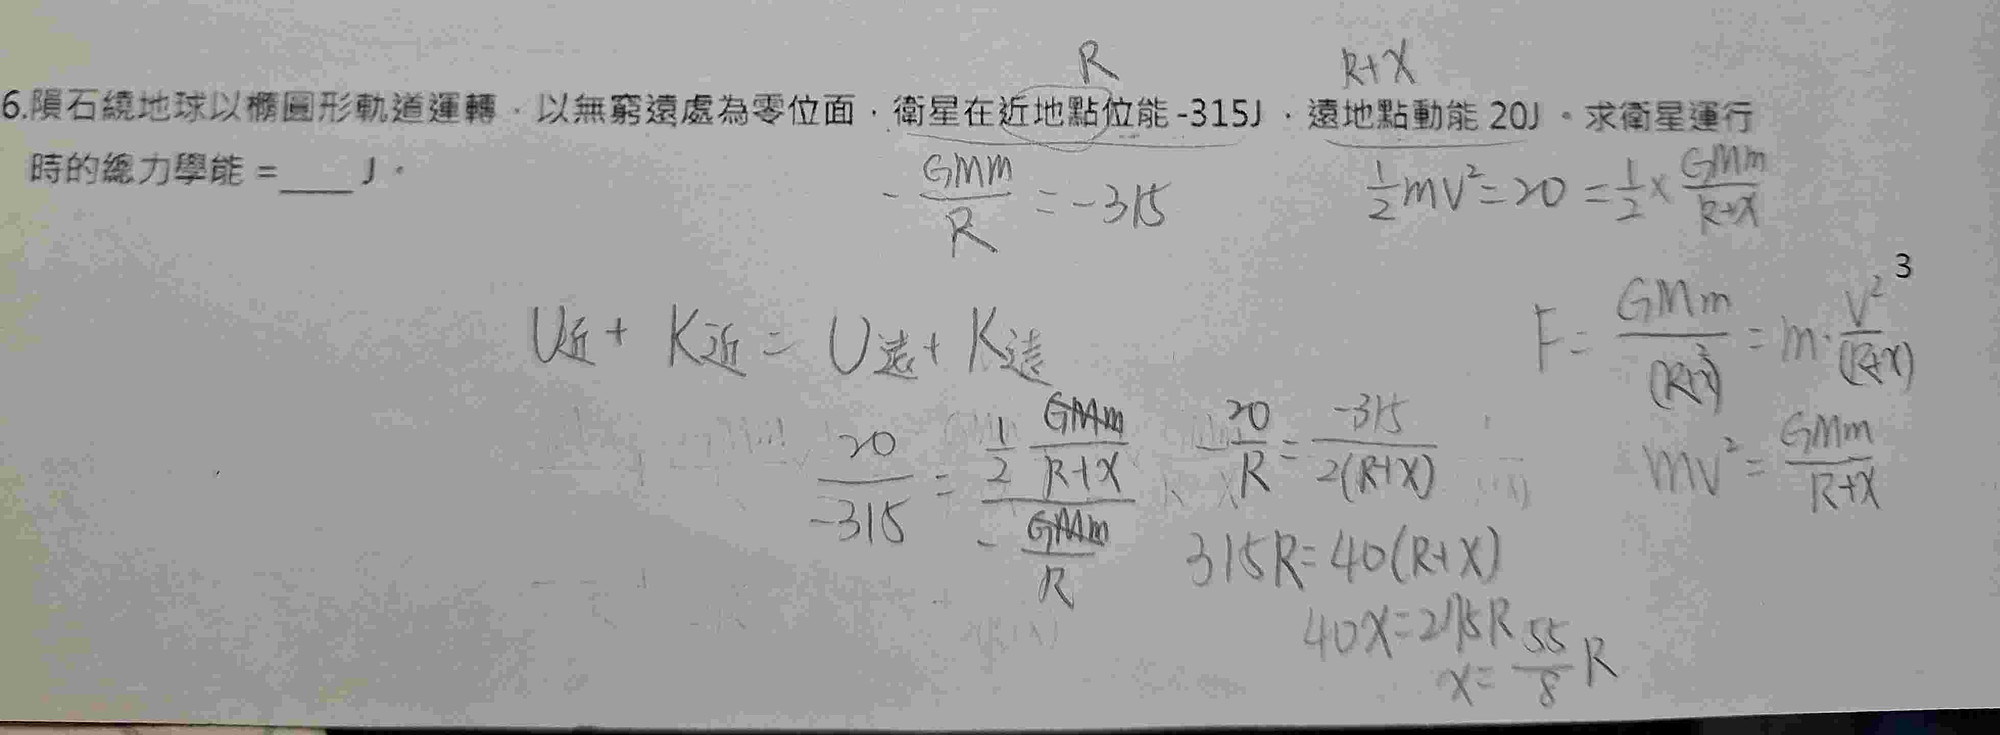 R
R+X
6.隕石繞地球以橢圓形軌道運轉，以無窮遠處為零位面，衛星在近地點位能-315J，遠地點動能20J。求衛星運行
時的總力學能=____J。
-GMm/R = -315
1/2 mV² = 20 = 1/2 × GMm/R+X
3
U近 + K近 = U遠 + K遠
F = GMm/(R+X)² = m·V²/(R+X)
20/-315 = 1/2 GMm/R+X / -GMm/R
-20/R = -315/2(R+X)
mV² = GMm/R+X
315R=40(R+X)
40X=275R
X=55/8 R